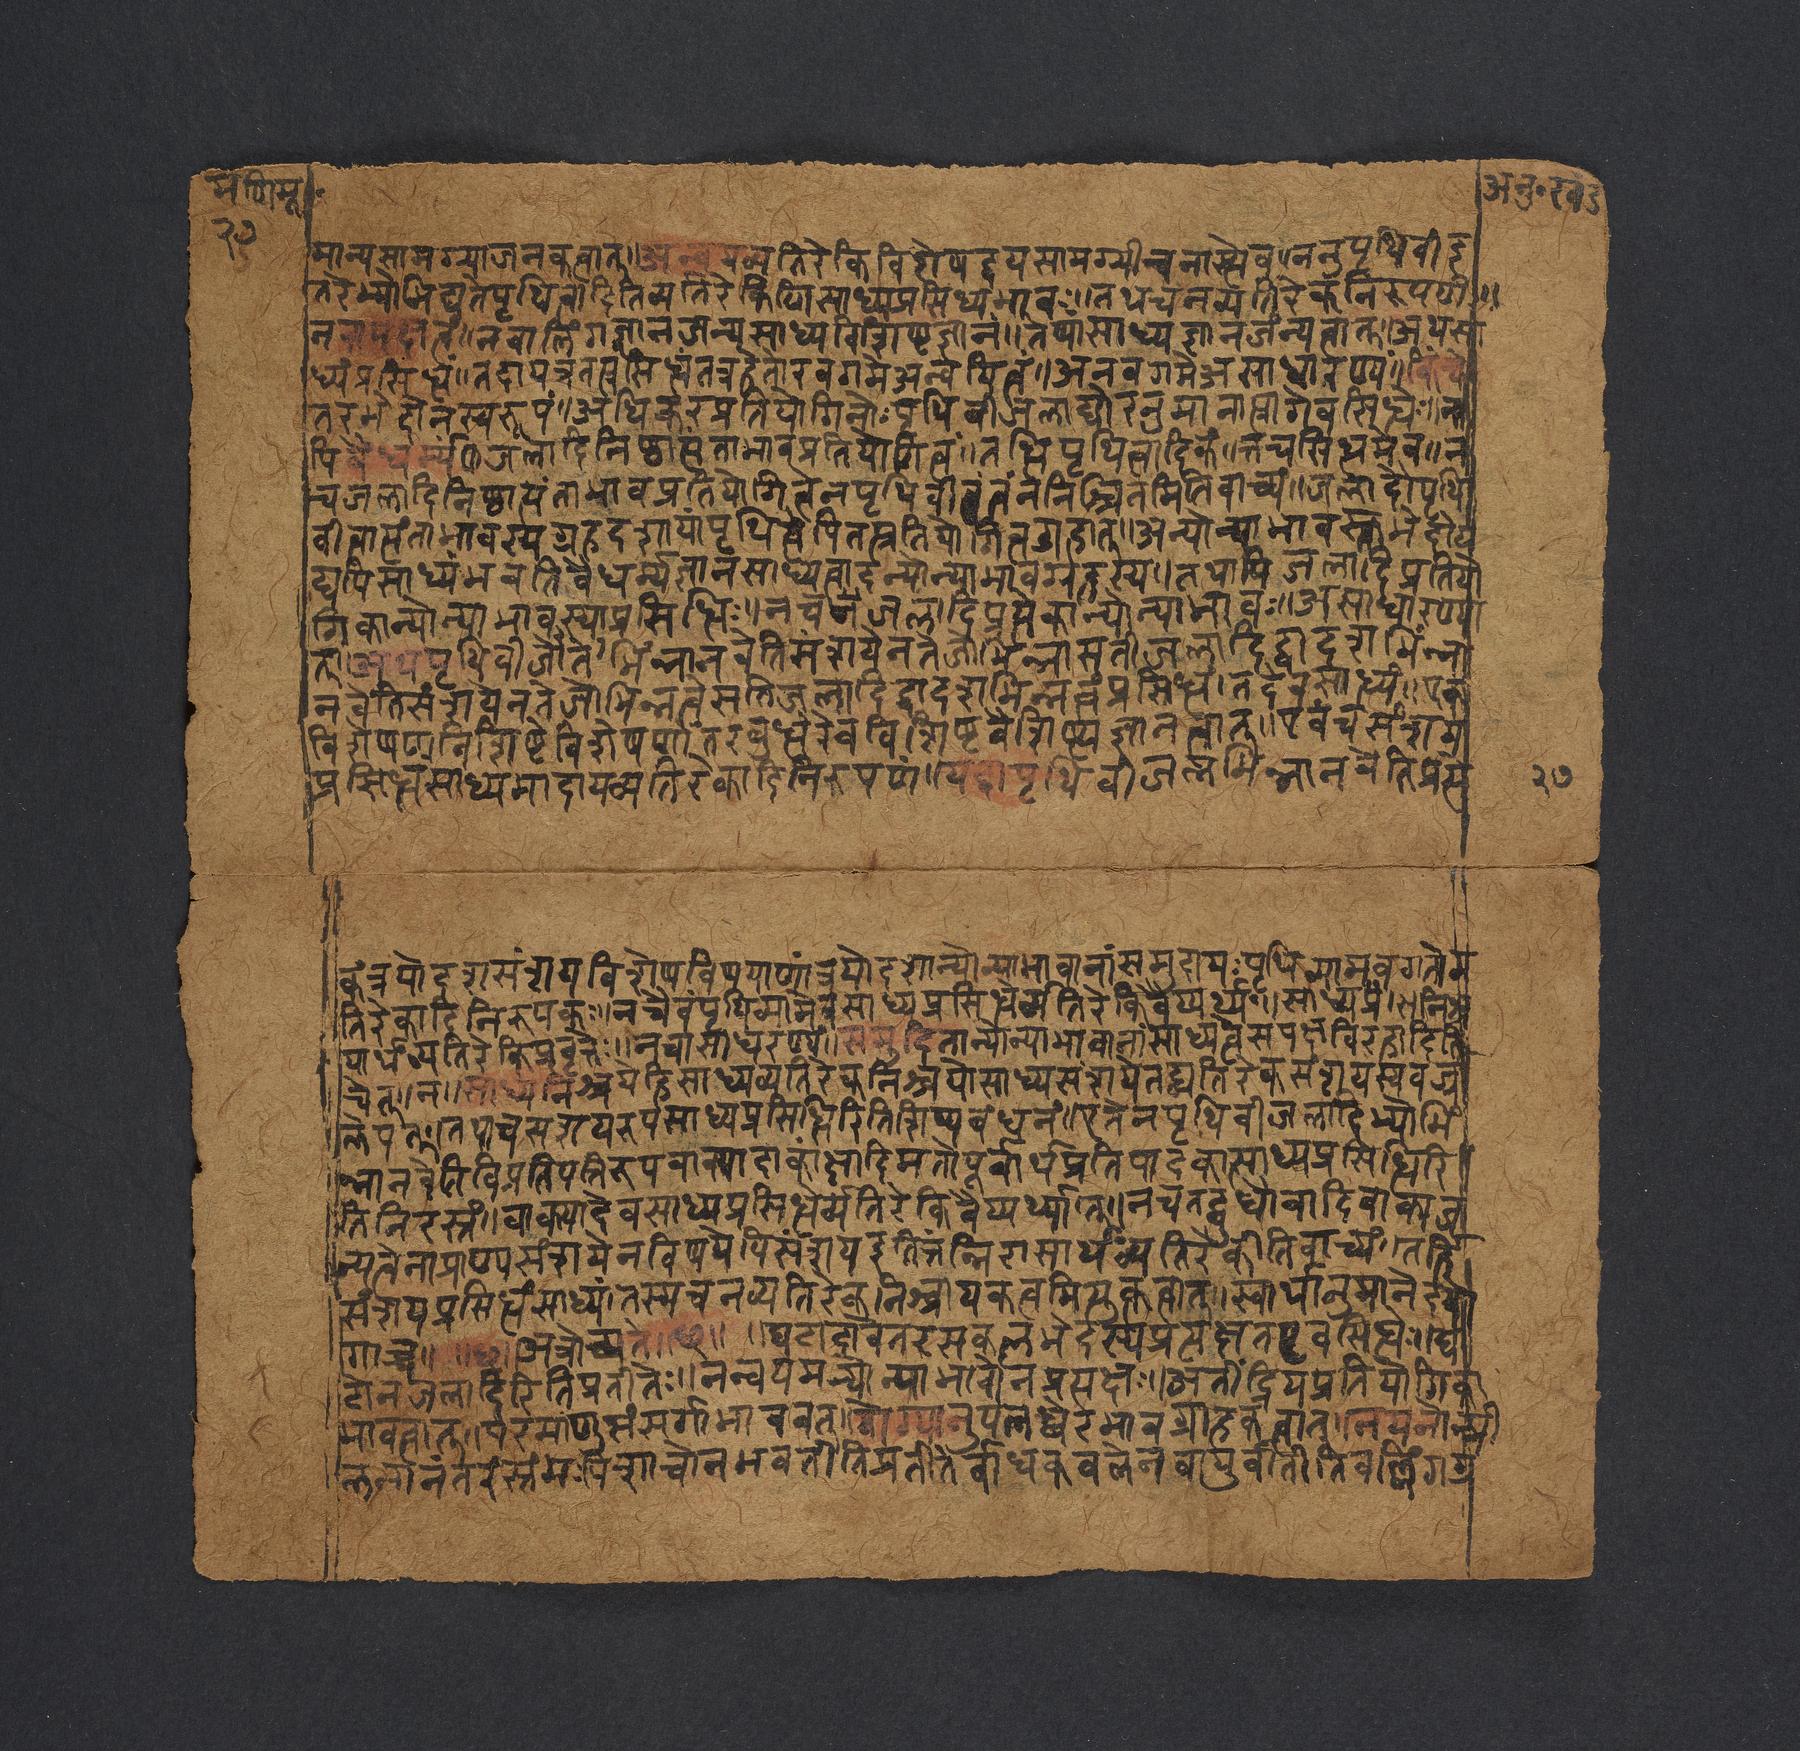 मणिमू॰
२७
अनु॰खंड
मान्यसामग्र्याजनकत्वात्॥अन्वयव्यतिरेकिविशेषद्वयसामग्रीत्वनास्त्येव॥ननुपृथिवीइ
तरेभ्योभिद्यतेपृथिवीत्वादितिव्यतिरेकिणिसाध्यप्रसिध्यभावः॥तथाचनव्यतिरेकनिरूपणं॥
नवापक्षत्वं॥नवालिंगज्ञानजन्यसाध्यविशिष्टज्ञानं॥तस्यसाध्यज्ञानजन्यत्वात्॥अथसा
ध्यंप्रसिध्धं॥तदायत्रतत्प्रसिध्धंतत्रहेतोरवगमेअन्वयित्वं॥अनवगमेअसाधारण्यं॥किंचे
तरभेदोनस्वरूपं॥अधिकरप्रतियोगिनोःपृथिवीजलाद्योरनुमानात्प्रागेवसिध्धेः॥ना
पिवैधर्म्यंजलादिनिष्ठात्यंताभावप्रतियोगित्वं॥तध्धिपृथिवीत्वादिकं॥तच्चसिध्धमेव॥न
चजलादिनिष्ठात्यंताभावप्रतियोगित्वेनपृथिवीत्वंननिश्चितमितिवाच्यं॥जलादौपृथि
वीत्वात्यंताभावस्यग्रहदशायांपृथिवीत्वेपितत्प्रतियोगित्वग्रहात्॥अन्योन्याभावस्तुभेदोय
द्यपिसाध्यंभवतिवैधर्म्यज्ञानसाध्यत्वादन्योन्याभावग्रहस्य॥तथापिजलादिप्रतियो
गिकान्योन्याभावस्याप्रसिध्धिः॥नचजलादिप्रत्येकान्योन्याभावः॥असाधारण्या
त्॥अथपृथिवीतेजोभिन्नानवेतिसंशयेनतेजोभिन्नासतीजलादिद्वादशभिन्ना
नवेतिसंशयेनतेजोभिन्नत्वेसतिजलादिद्वादशभिन्नत्वंप्रसिध्धं॥तदेवसाध्यं॥एक
विशेषणविशिष्टेविशेषणांतरबुध्धेरेवविशिष्टवैशिष्ट्यज्ञानत्वात्॥एवंचसंशय
प्रसिध्धंसाध्यमादायव्यतिरेकादिनिरूपणं॥यद्वापृथिवीजलभिन्नानवेतिप्रत्ये
२७
कंत्रयोदशसंशयविशेषविषयाणांत्रयोदशान्योन्याभावानांसमुदायःपृथिव्यामवगतोव्य
तिरेकादिनिरूपकः॥नचैवंपृथिव्यामेवसाध्यप्रसिध्धेर्व्यतिरेकिवैयर्थ्यं॥साध्यनिश्च
यार्थंव्यतिरेकिप्रवृत्तेः॥नचासाधारण्यं॥समुदितान्योन्याभावानांसाध्यत्वेसपक्षविरहादिति
चेत्॥न॥साध्यनिश्चयेहिसाध्यव्यतिरेकनिश्चयोसाध्यसंशयेतद्व्यतिरेकसंशयस्यवज्र
लेपत्वात्॥तथाचसंशयरूपसाध्यप्रसिध्धिरितिशिष्यबंधनं॥एतेनपृथिवीजलादिभ्योभि
न्नानवेतिविप्रतिपत्तिरूपवाक्यादाकांक्षादिमतोपूर्वार्थप्रतिपादकात्साध्यप्रसिध्धिरि
तिनिरस्तं॥वाक्यादेवसाध्यप्रसिध्धेर्व्यतिरेकिवैयर्थ्यात्॥नचतद्बुध्धौवादिवाक्यज
न्यत्वेनाप्रामाण्यसंशयेनविषयेपिसंशयइतितन्निरासार्थंव्यतिरेकीतिवाच्यं॥तर्हि
संशयप्रसिध्धंसाध्यं॥तस्यचनव्यतिरेकनिश्चायकत्वमित्युक्तत्वात्॥स्वार्थानुमाने
गाच्च॥॥छ॥अत्रोच्यते॥छ॥॥घटादावेवेतरसकलभेदस्यप्रत्यक्षतएवसिध्धेः॥घ
टोनजलादिरितिप्रतीतेः॥नन्वयमन्योन्याभावोनप्रत्यक्षः॥अतींद्रियप्रतियोगिक
भावत्वात्॥परमाणुसंसर्गाभाववत्॥योग्यानुपलब्धेरभावग्राहकत्वात्॥नयनोन्मी
लनानंतरंस्तंभःपिशाचोनभवतीतिप्रतीतेर्बाधकबलेनवायुर्वातीतिवल्लिंगग्र